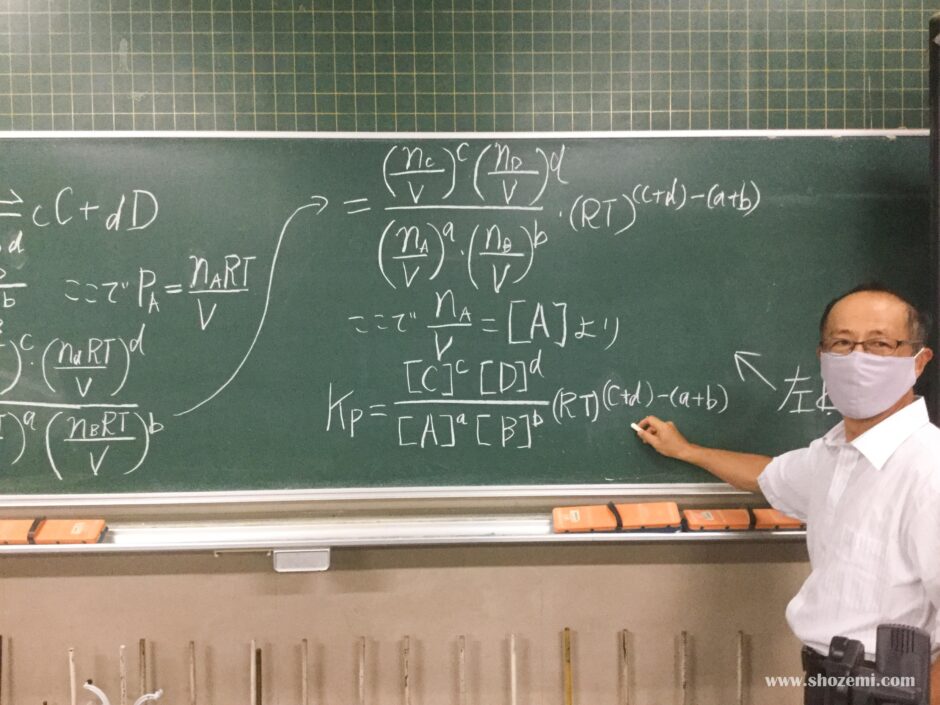 ⇌ cC + dD
ここで P_A = n_A RT / V
)^c · (n_d RT / V)^d
)^a (n_B RT / V)^b
= (n_C / V)^c (n_D / V)^d / (n_A / V)^a · (n_B / V)^b · (RT)^((c+d)-(a+b))
ここで n_A / V = [A] より
K_P = [C]^c [D]^d / [A]^a [B]^b (RT)^((c+d)-(a+b))
左
www.shozemi.com